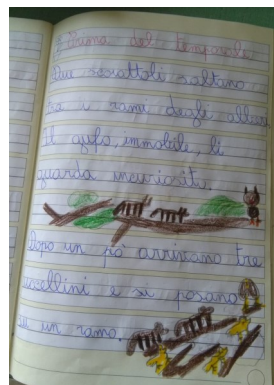 Prima del temporale
Due scoiattoli saltano
tra i rami degli alberi.
Il gufo, immobile, li
guarda incuriosito.
Dopo un pò arrivano tre
uccellini e si posano
su un ramo.